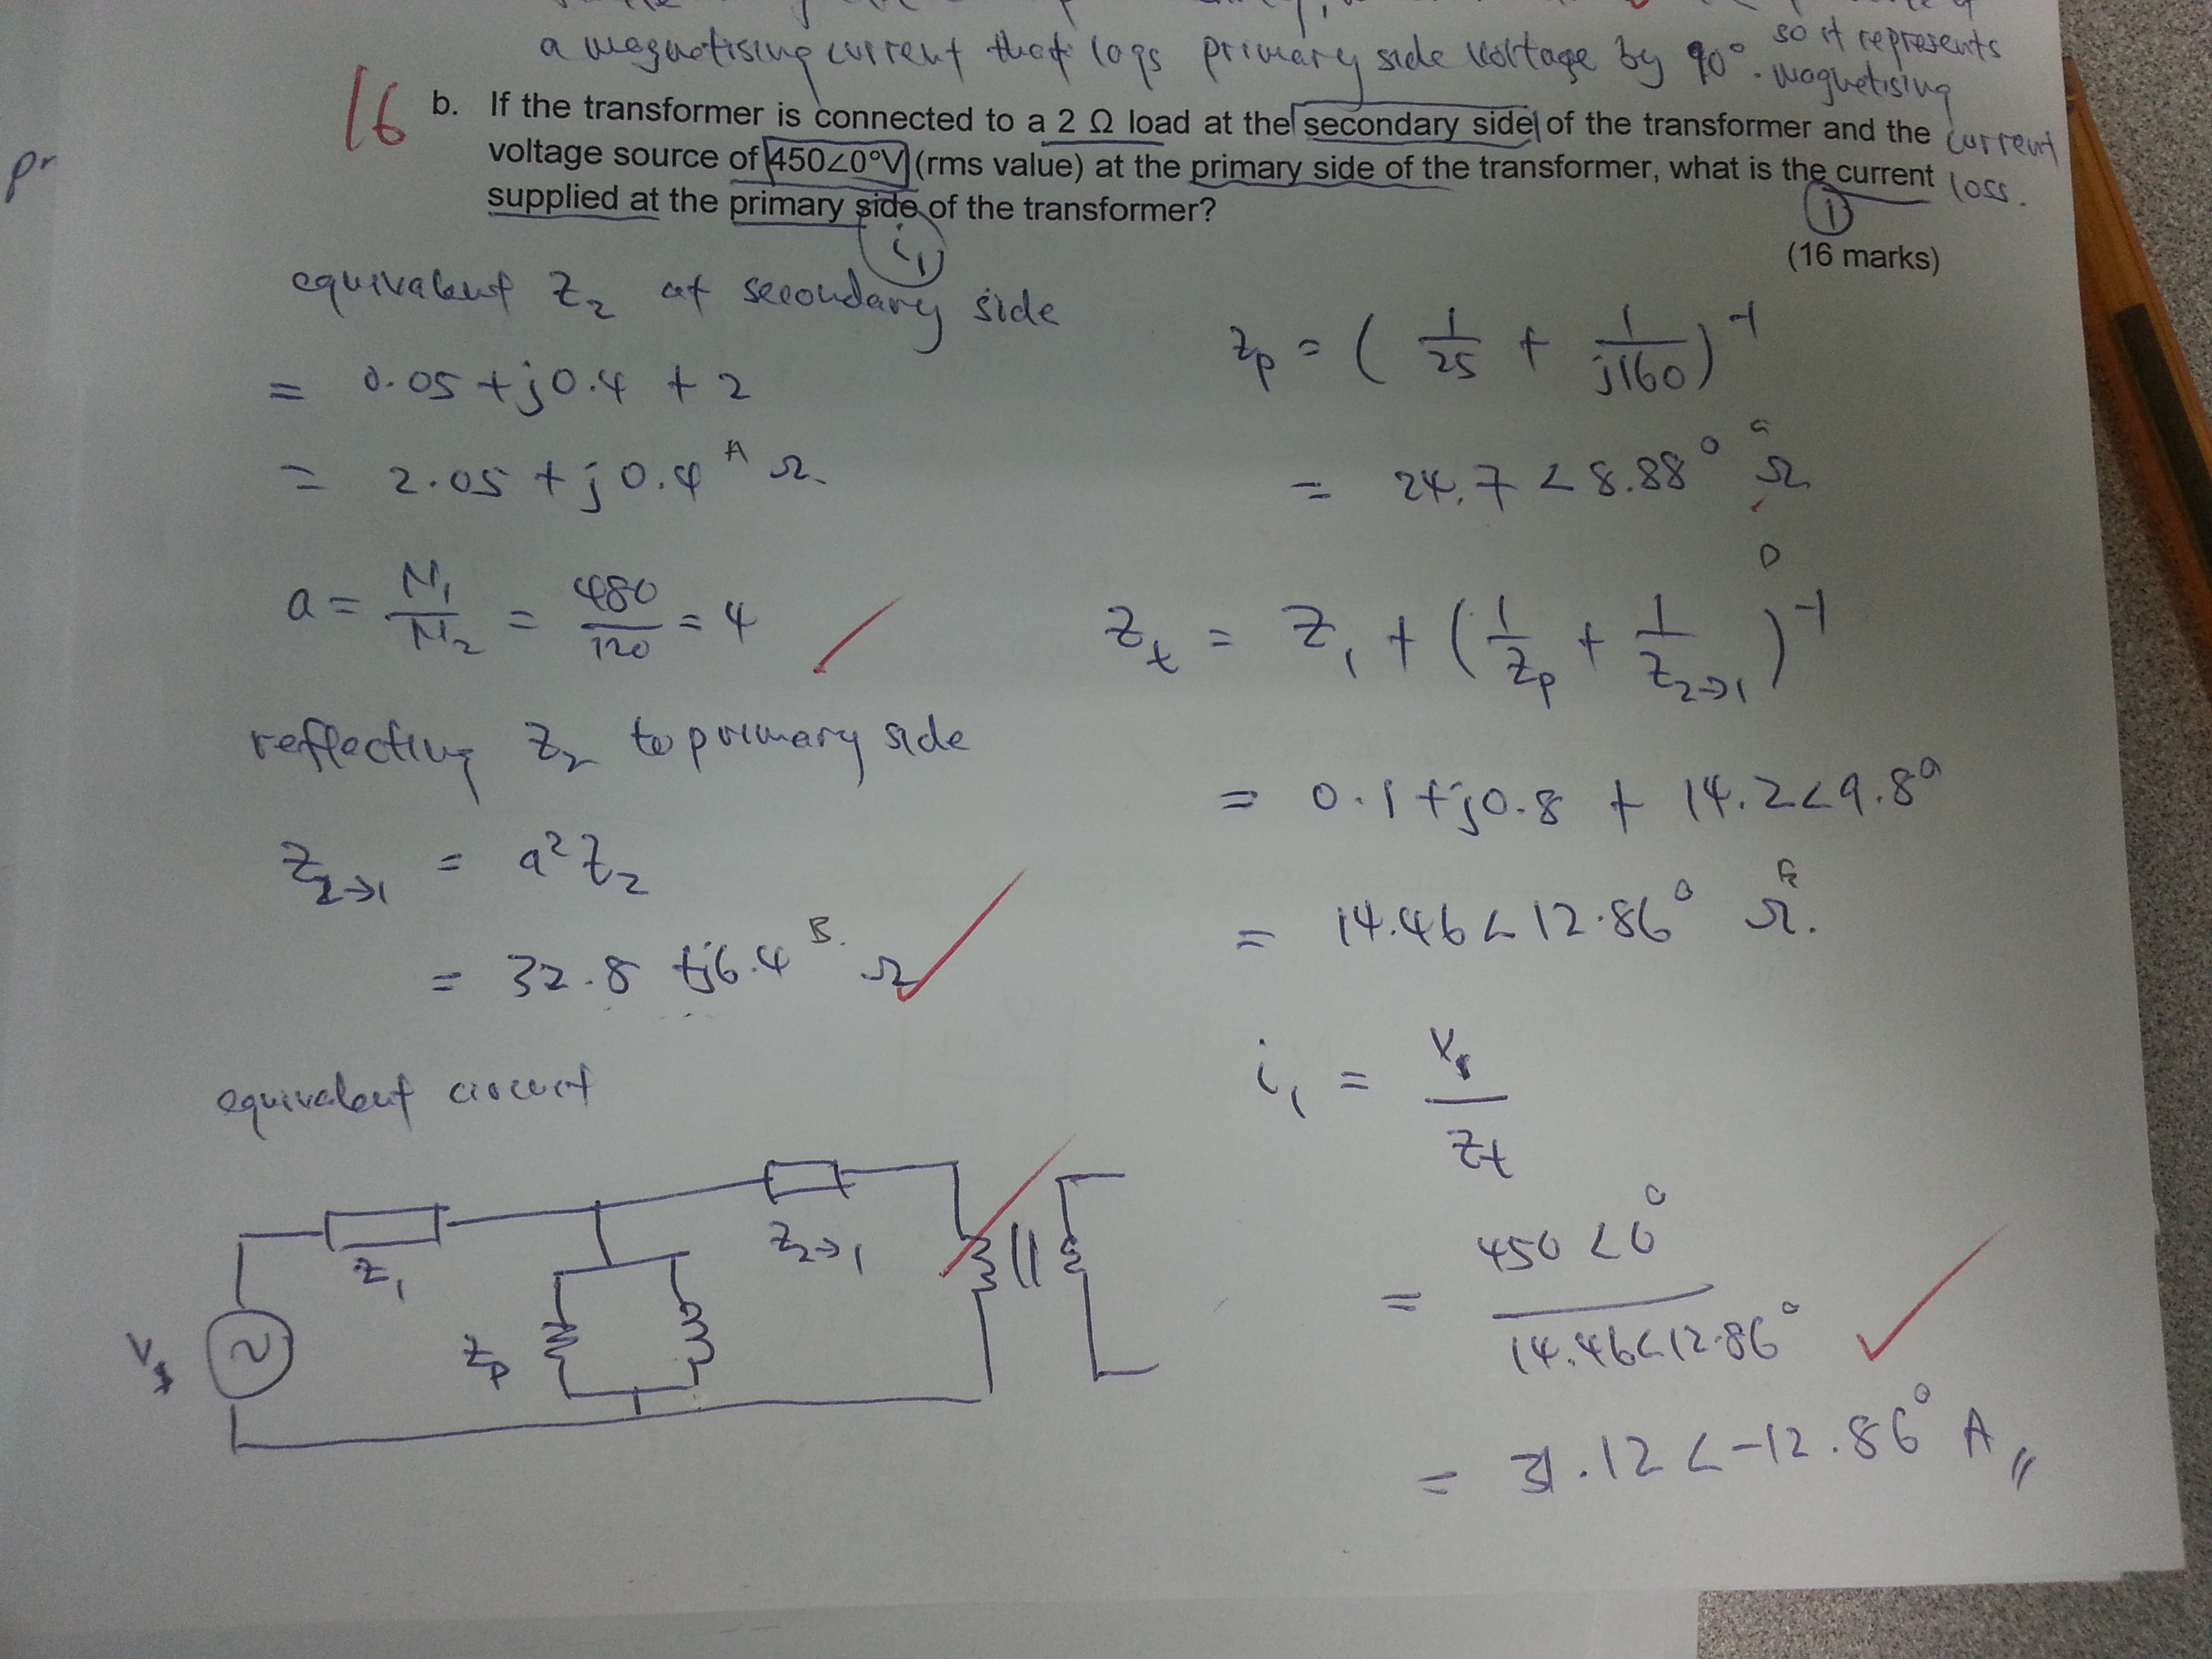 a magnetising current that lags primary side voltage by 90°. so it represents magnetising current loss.
16
pr
b. If the transformer is connected to a 2 Ω load at the secondary side of the transformer and the
voltage source of 450∠0°V (rms value) at the primary side of the transformer, what is the current
supplied at the primary side of the transformer?
i₁
①
(16 marks)
equivalent Z₂ at secondary side
= 0.05 + j0.4 + 2
= 2.05 + j0.4 ᴬ Ω
a = N₁/N₂ = 480/120 = 4
reflecting Z₂ to primary side
Z₂→₁ = a²Z₂
= 32.8 + j6.4 ᴮ Ω
equivalent circuit
Z₁
Z₂→₁
Zp
~
Zp = (1/25 + 1/j160)⁻¹
= 24.7 ∠ 8.88° Ω
D
Zt = Z₁ + (1/Zp + 1/Z₂→₁)⁻¹
= 0.1 + j0.8 + 14.2∠9.8°
= 14.46 ∠ 12.86° Ω.
i₁ = V₁/Zt
= 450∠0° / 14.46∠12.86°
= 31.12 ∠ -12.86° A //